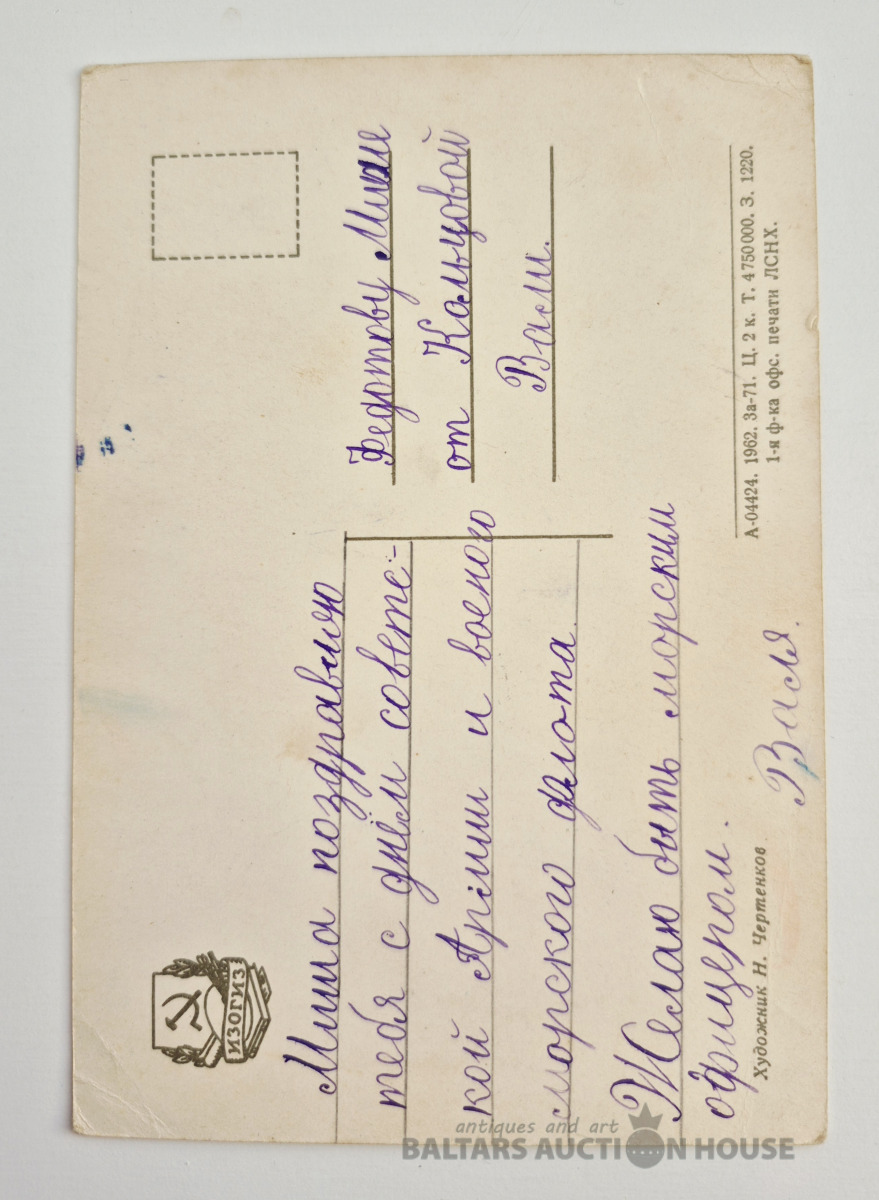 ИЗОГИЗ
Миша поздравляю
тебя с днём советс-
кой Армии и военого
морского флота
Желаю быть морским
офицером.
Валя.
Художник Н. Чертенков
Федотову Мише
от Кальцовой
Вали.
А-04424. 1962. За-71. Ц. 2 к. Т. 4750000. З. 1220.
1-я ф-ка офс. печати ЛСНХ.
antiques and art
BALTARS AUCTION HOUSE